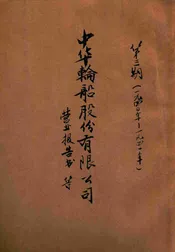 第三期(一九四〇年—一九四一年)
中华轮船股份有限公司
营业报告书等